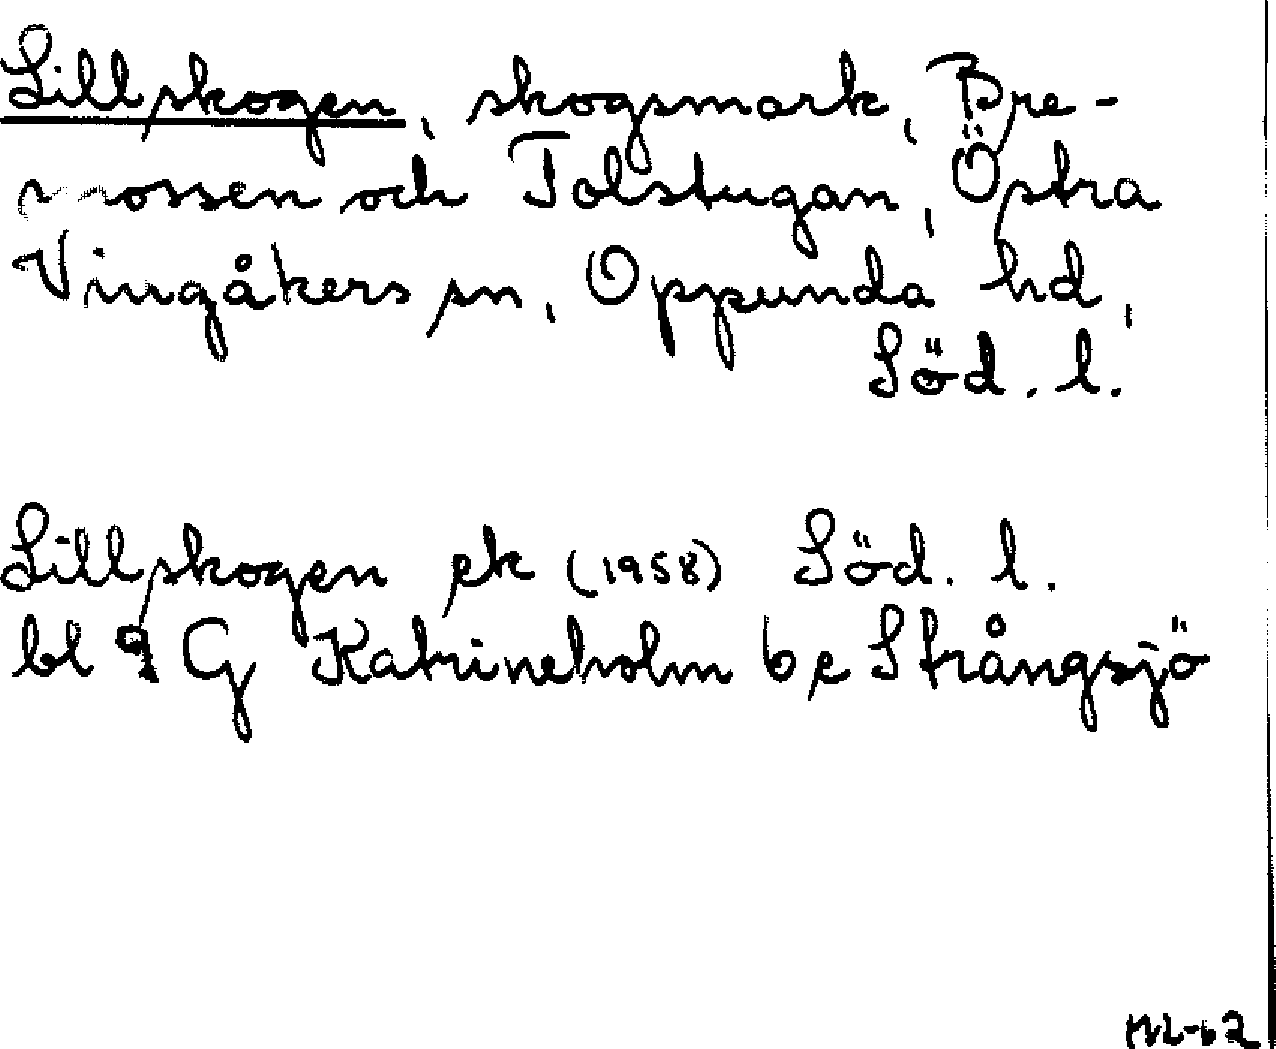 Lillskogen, skogsmark, Bre-
mossen och Tolstugan, Östra
Vingåkers sn, Oppunda hd,
Söd. l.
Lillskogen ek (1958) Söd. l.
bl 9 G Katrineholm 6 e Strångsjö